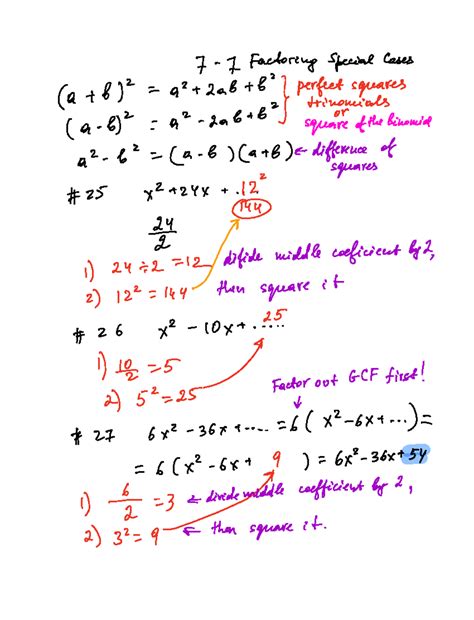 7-7 Factoring Special Cases
(a+b)² = a²+2ab+b² } perfect squares
trinomials
or
(a-b)² = a²-2ab+b² square of the binomial
a²-b² = (a-b)(a+b) ← difference of
squares
#25 x²+24x+..12²
144
24/2
1) 24÷2=12 difide middle coeficient by 2,
2) 12²=144 than square it
#26 x²-10x+ 25.....
1) 10/2 =5
2) 5²=25
Factor out GCF first!
#27 6x²-36x+.... =6(x²-6x+...)=
=6(x²-6x+ 9 )=6x²-36x+54
1) 6/2 =3 ← divide middle coefficient by 2,
2) 3²=9 ← than square it.